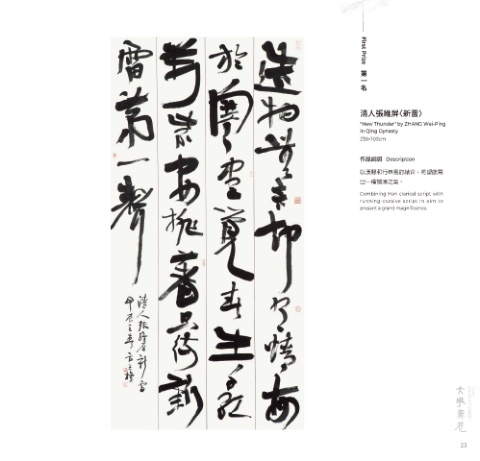 造物無言卻有情每
於寒盡覺春生千紅
萬紫安排著只待新
雷第一聲
清人張維屏新雷
First Prize 第一名
清人張維屏〈新雷〉
"New Thunder" by ZHANG Wei-Ping
in Qing Dynasty
作品說明 Description
以漢隸和行草書的結合,希望能寫
出一種雄渾之氣。
Combining Han clerical script with
running-cursive script in aim to
present a grand magnificence.
23